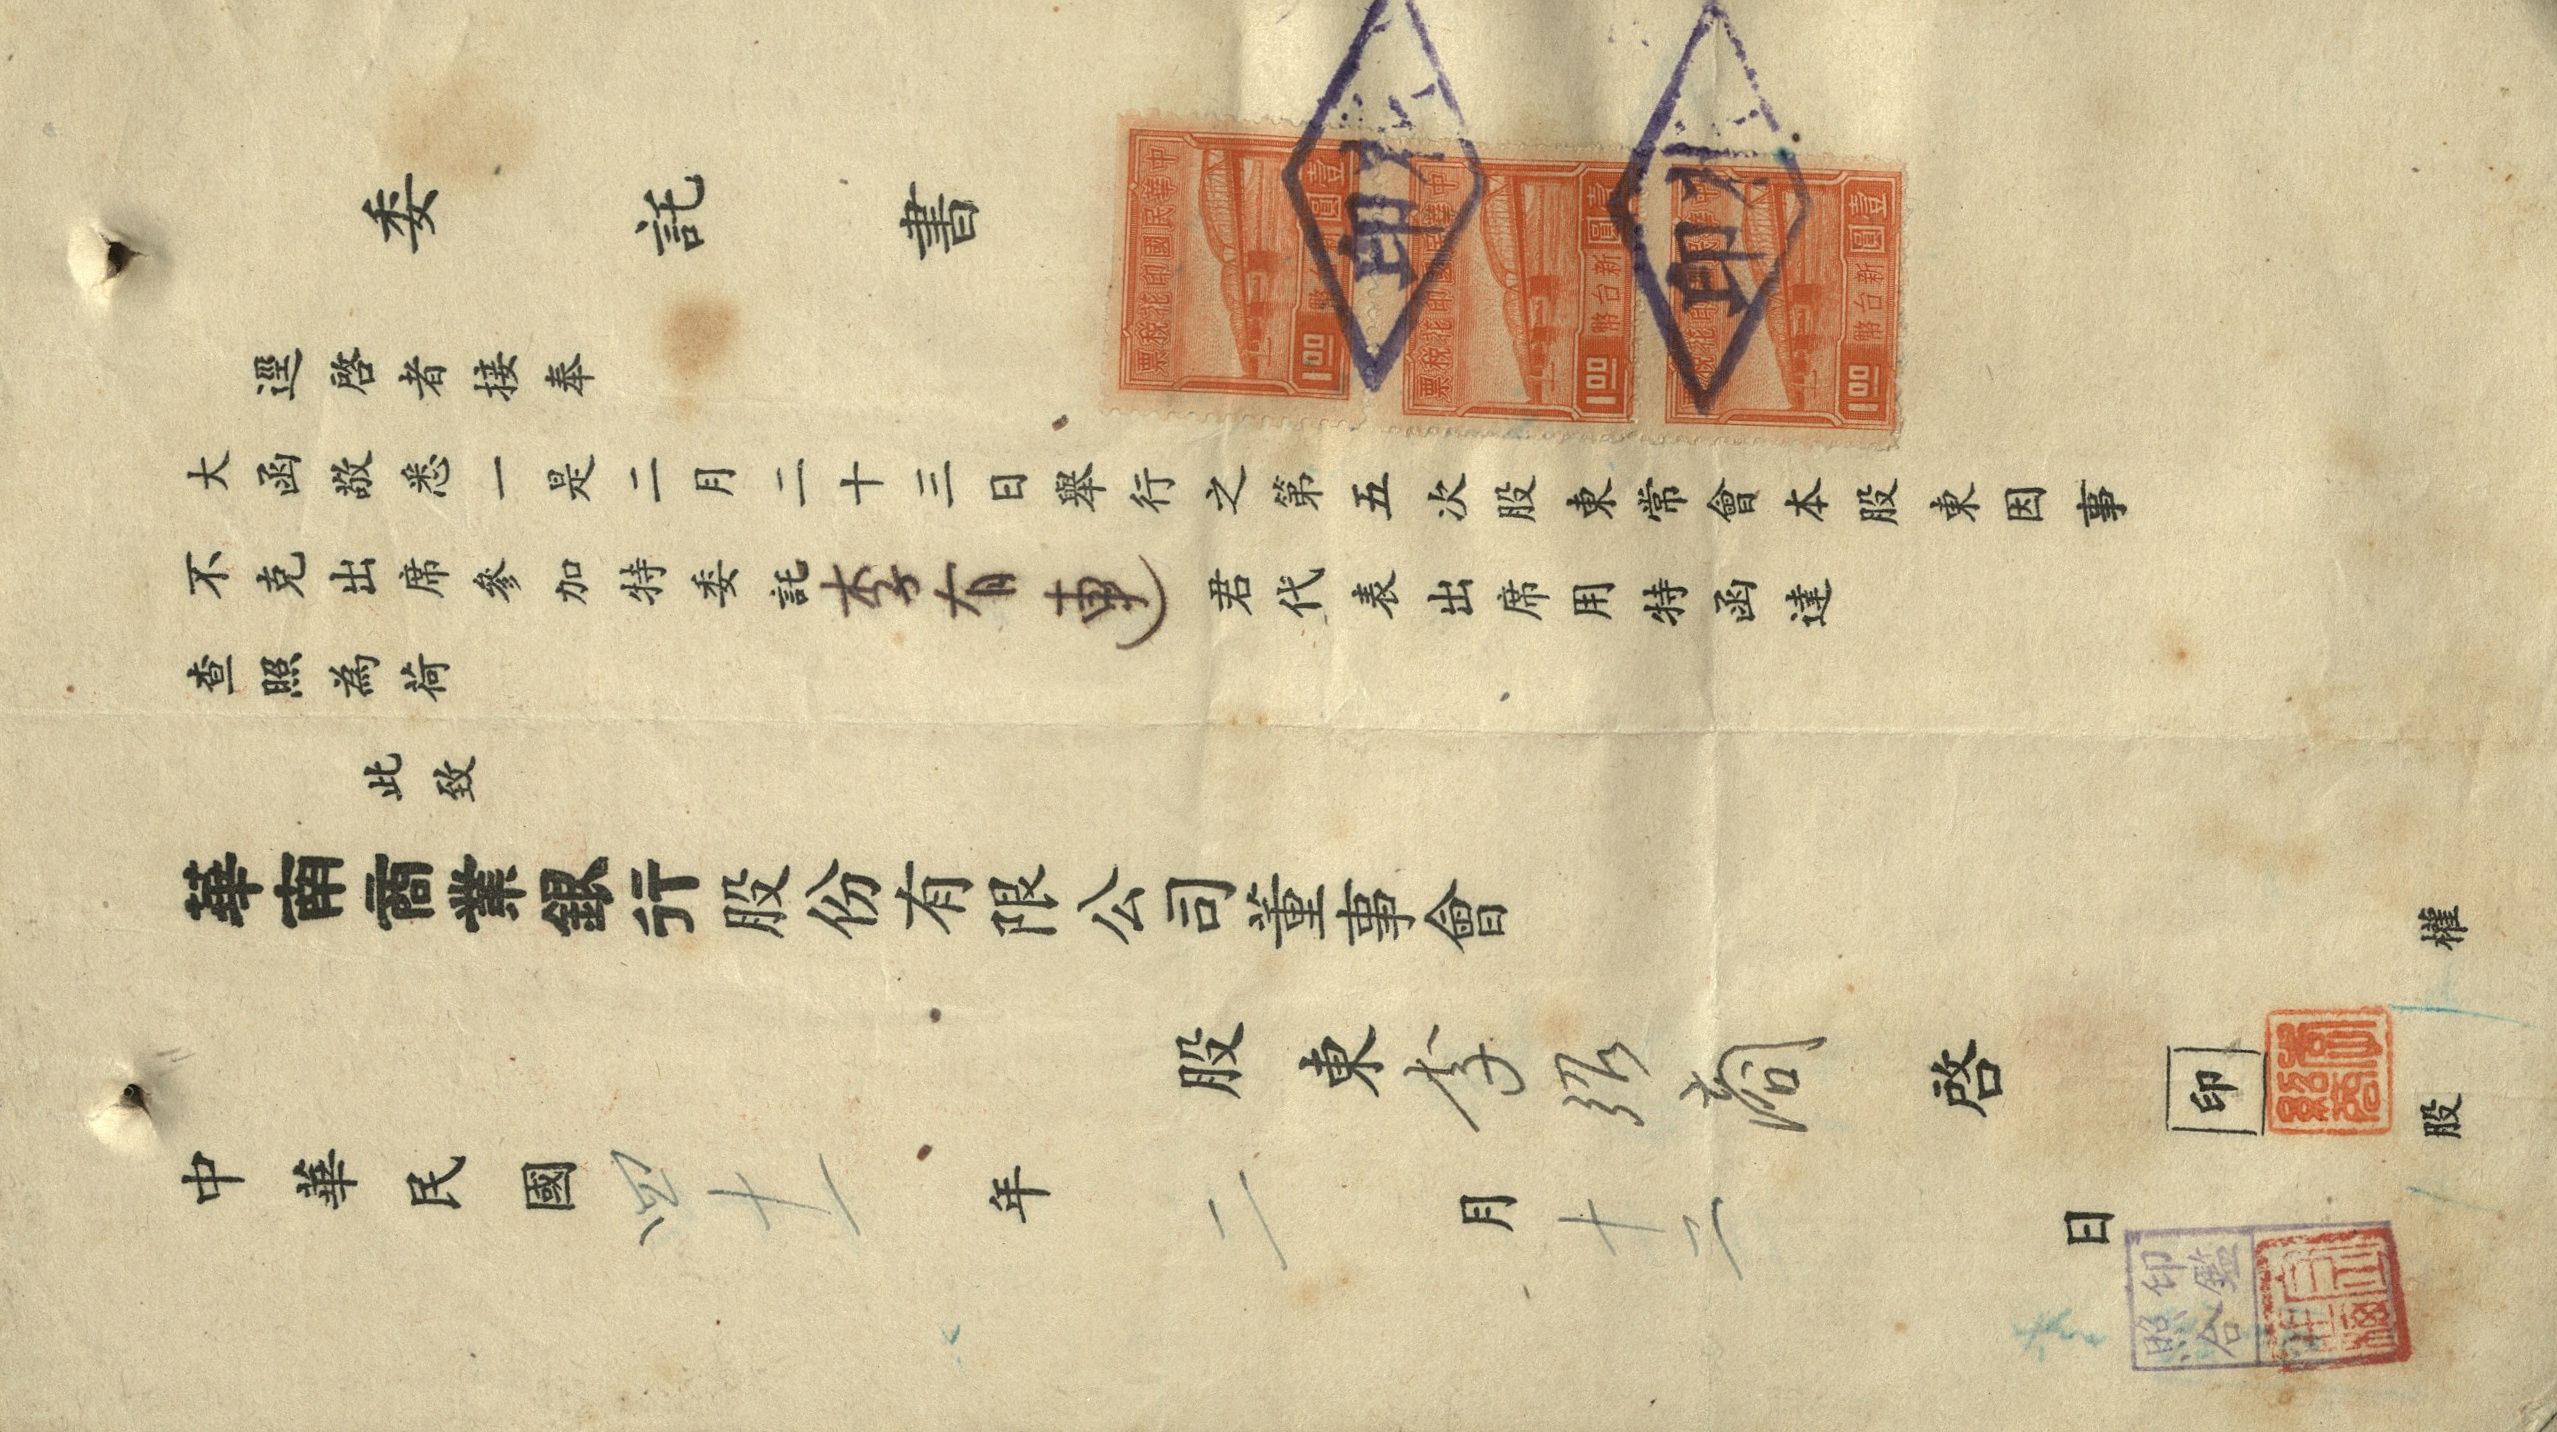 委託書
逕啓者接奉
大函敬悉一是二月二十三日舉行之第五次股東常會本股東因事
不克出席參加特委託李有連君代表出席用特函達
查照為荷
此致
華南商業銀行股份有限公司董事會
股東李 啓 印
中華民國四十一年二月十二日
股 權
中華民國印花稅票
壹圓 新台幣
1.00
中華民國印花稅票
壹圓 新台幣
1.00
中華民國印花稅票
壹圓 新台幣
1.00
印
印
印鑑
照合